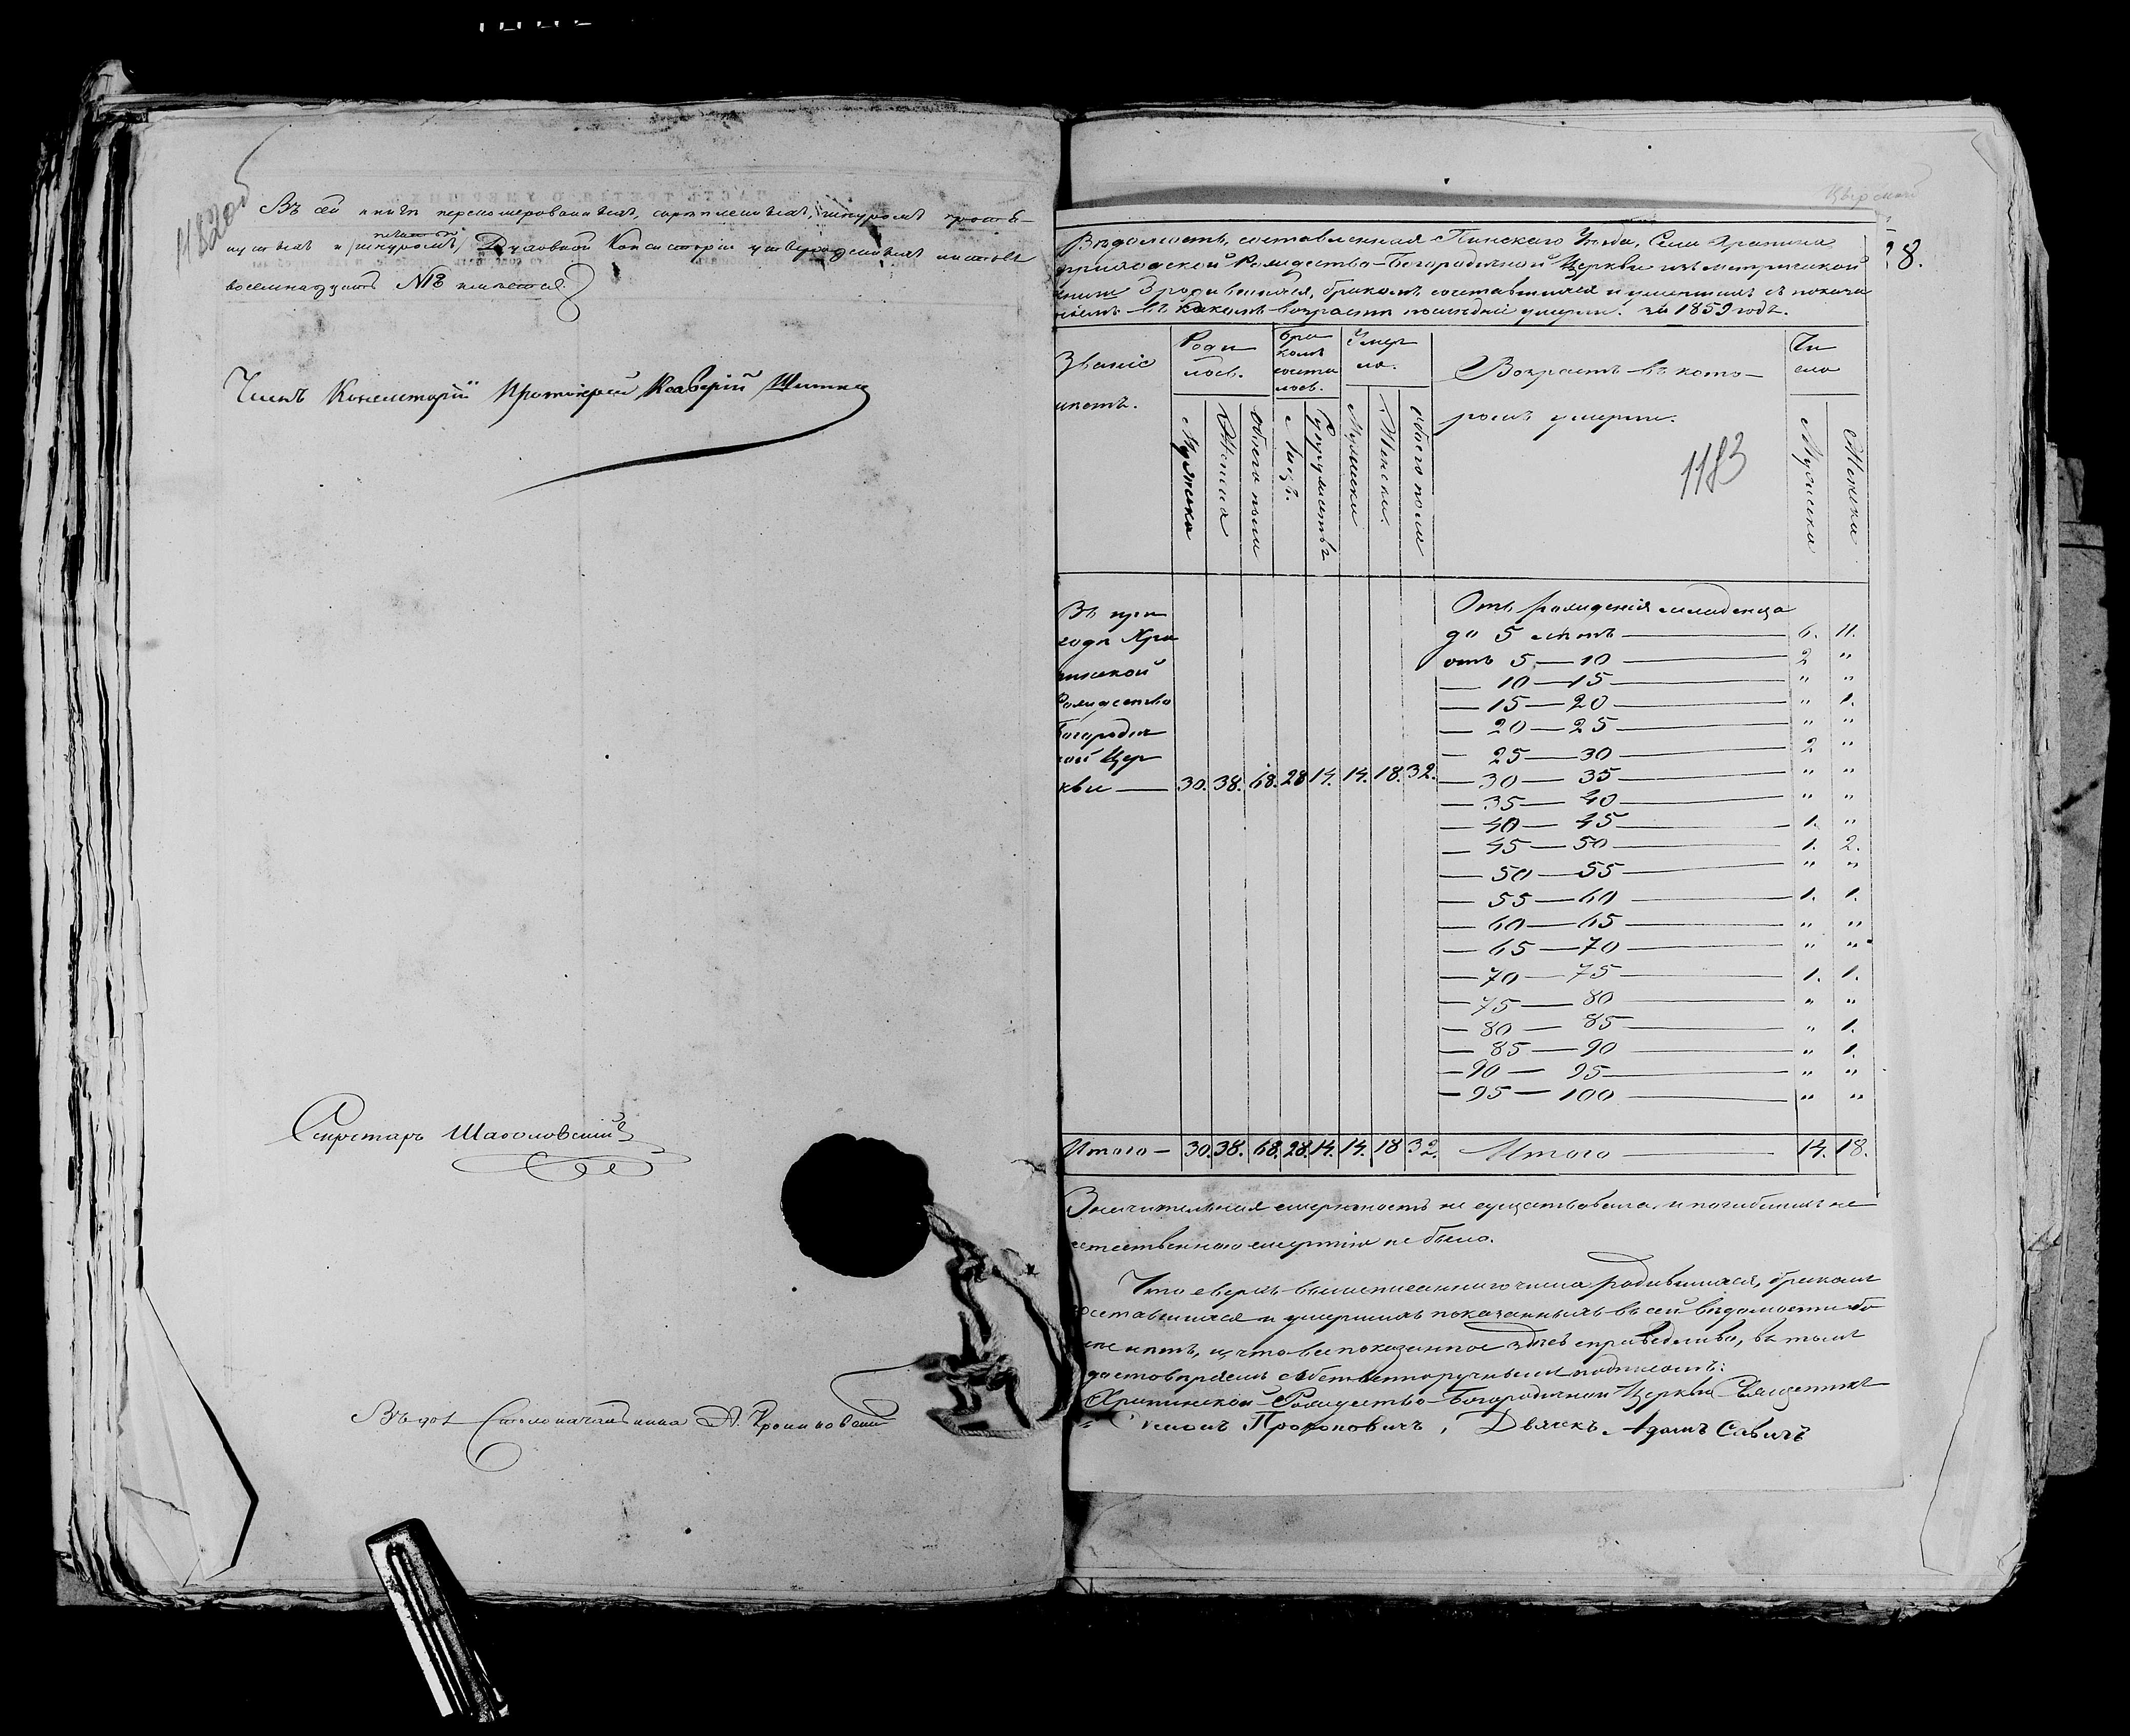 1182об
Въ сей книгѣ перенумерованныхъ, скрѣпленныхъ, шнуромъ прошну-
печатью
тыхъ и /шнуромъ/ Духовной Консисторіи утвержденныхъ листовъ
восемнадцать №18 имѣется.
Членъ Консисторіи Протоіерей Ксаверій
Секретарь
Столоначальника А.
8.
Вѣдомость, составленная Пинскаго Уѣзда, Села Храпина
приходской Рождество-Богородичной Церкви изъ метрической
книги о родившихся, бракомъ сочетавшихся и умершихъ съ показа
ніемъ въ какомъ возрастѣ послѣдніе умерли. за 1859 годъ.
Званіе
мѣстъ.
Роди
лось.
Бра
комъ
сочета
лось.
Умер
ло.
Возрастъ въ кото-
ромъ умерли.
Чи
сло
Мужска
Женска
Обоего пола
Лицъ.
Супружествъ
Мужска
Женска.
Обоего пола
Мужска
Женска
1183
Въ при
ходѣ Хра
пинской
Рождество
Богородич
ной Цер
кви — 30. 38. 68. 28 14. 14. 18. 32.
Отъ рожденія младенца
до 5 лѣтъ — 6. 11.
отъ 5 — 10 — 2 "
— 10 — 15 — " "
— 15 — 20 — " 1.
— 20 — 25 — " "
— 25 — 30 — 2 "
— 30 — 35 — " "
— 35 — 40 — " "
— 40 — 45 — 1. "
— 45 — 50 — 1. 2.
— 50 — 55 — " "
— 55 — 60 — 1. 1.
— 60 — 65 — " "
— 65 — 70 — " "
— 70 — 75 — 1. 1.
— 75 — 80 — " "
— 80 — 85 — " 1.
— 85 — 90 — " 1.
— 90 — 95 — " "
— 95 — 100 — " "
Итого — 30. 38. 68. 28. 14. 14. 18 32. Итого — 14. 18.
Значительная смертность не существовала, и погибшихъ не
естественною смертію не было.
Что сверхъ вышеписаннаго числа родившихся, бракомъ
сочетавшихся и умершихъ показанныхъ въ сей вѣдомости бо
лѣе нѣтъ, и что все показанное здѣсь справедливо, въ томъ
удостовѣряемъ собственноручнымъ подписомъ:
Храпинской Рождество-Богородичной Церкви Священникъ
Симонъ Прокоповичъ, Дьячекъ Адамъ Савичъ